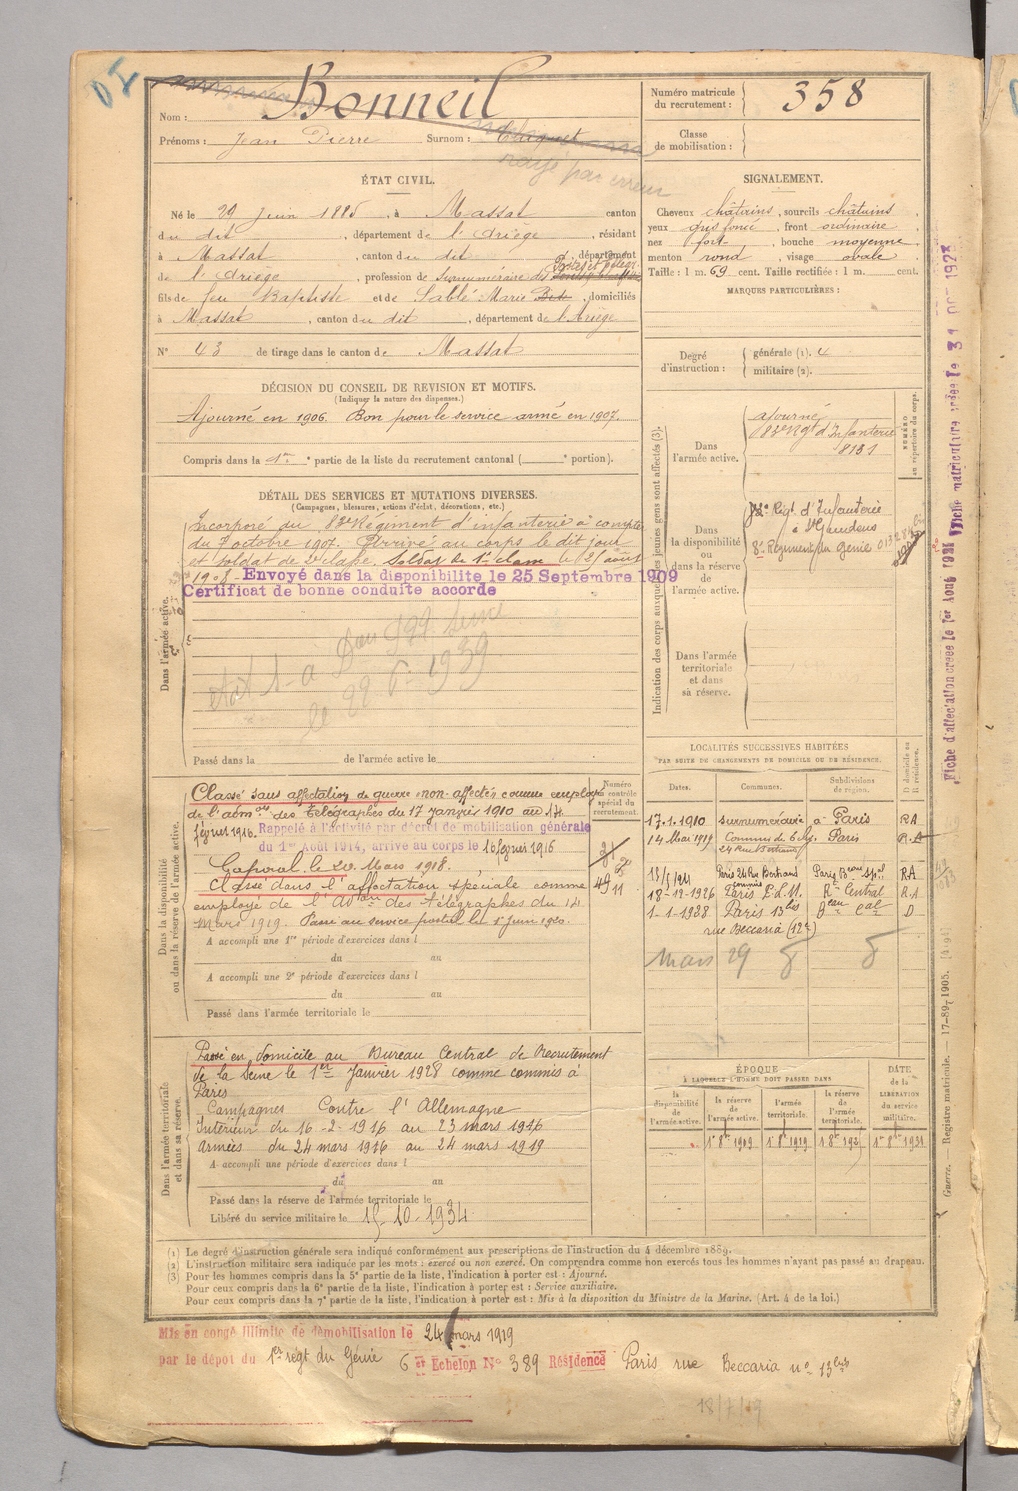 Nom : Bonneil
Prénoms : Jean Pierre Surnom :
rayé par erreur
Numéro matricule du recrutement : 358
Classe de mobilisation :
ÉTAT CIVIL.
Né le 29 Juin 1885, à Massat canton
du dit, département de l'Ariège, résidant
à Massat, canton du dit, département
de l'Ariège, profession de Surnuméraire des Postes et télégr.
fils de feu Baptiste et de Sablé Marie Dite, domiciliés
à Massat, canton du dit, département de l'Ariège
N° 43 de tirage dans le canton de Massat
SIGNALEMENT.
Cheveux châtains, sourcils châtains,
yeux gris foncé, front ordinaire,
nez fort, bouche moyenne,
menton rond, visage ovale.
Taille : 1 m. 69 cent. Taille rectifiée : 1 m. cent.
MARQUES PARTICULIÈRES :
Degré d'instruction : générale (1). 4
militaire (2).
DÉCISION DU CONSEIL DE REVISION ET MOTIFS.
(Indiquer la nature des dispenses.)
Ajourné en 1906. Bon pour le service armé en 1907.
Compris dans la 1re partie de la liste du recrutement cantonal ( e portion).
DÉTAIL DES SERVICES ET MUTATIONS DIVERSES.
(Campagnes, blessures, actions d'éclat, décorations, etc.)
Dans l'armée active.
Incorporé au 83e Régiment d'infanterie à compter
du 7 octobre 1907. Arrivé au corps le dit jour
et soldat de 2e classe. Soldat de 1re classe le 25 août
1908 - Envoyé dans la disponibilite le 25 Septembre 1909
Certificat de bonne conduite accorde
le 22 6 1939
Passé dans la de l'armée active le
Indication des corps auxquels les jeunes gens sont affectés (3).
NUMÉRO au répertoire du corps.
Dans l'armée active.
ajourné
83e Rgt d'Infanterie
8131
Dans la disponibilité ou dans la réserve de l'armée active.
Rigt d'Infanterie
à St Gaudens
8e Régiment du Génie
Dans l'armée territoriale et dans sa réserve.
LOCALITÉS SUCCESSIVES HABITÉES
PAR SUITE DE CHANGEMENTS DE DOMICILE OU DE RÉSIDENCE.
Dates. Communes. Subdivisions de région. D domicile ou R résidence.
17.1.1910 surnuméraire à Paris RA
14 Mai 1919 Commis de Paris R.A
24 Rue Bertrand
Paris 24 Rue Bertrand Paris RA
18-12-1926 Paris R. Central R.A
1-1-1928 Paris 13 bis D
rue Beccaria (12e)
mars 29
Dans la disponibilité ou dans la réserve de l'armée active.
Numéro au contrôle spécial du recrutement.
Classé sans affectation de guerre "non-affecté" comme employé
de l'admon des télégraphes du 17 janvier 1910 au 14
février 1916. Rappelé à l'activité par décret de mobilisation générale
du 1er Août 1914, arrive au corps le 16 février 1916
Caporal le 20 Mars 1918.
Classé dans l'affectation spéciale comme
employé de l'Adon des télégraphes du 14
mars 1919. Passé au service postal le 1er juin 1920.
A accompli une 1re période d'exercices dans l
du au
A accompli une 2e période d'exercices dans l
du au
Passé dans l'armée territoriale le
Dans l'armée territoriale et dans sa réserve.
Passé en domicile au Bureau Central de Recrutement
de la Seine le 1er Janvier 1928 comme commis à
Paris
Campagnes Contre l'Allemagne
Intérieur du 16-2-1916 au 23 mars 1916
armées du 24 mars 1916 au 24 mars 1919
A accompli une période d'exercices dans l
du au
Passé dans la réserve de l'armée territoriale le
Libéré du service militaire le 15-10-1934
ÉPOQUE
À LAQUELLE L'HOMME DOIT PASSER DANS
la disponibilité de l'armée active. la réserve de l'armée active. l'armée territoriale. la réserve de l'armée territoriale. DATE de la LIBÉRATION du service militaire.
1er 8bre 1909 1er 8bre 1919 1er 8bre 1931
(1) Le degré d'instruction générale sera indiqué conformément aux prescriptions de l'instruction du 4 décembre 1889.
(2) L'instruction militaire sera indiquée par les mots : exercé ou non exercé. On comprendra comme non exercés tous les hommes n'ayant pas passé au drapeau.
(3) Pour les hommes compris dans la 5e partie de la liste, l'indication à porter est : Ajourné.
Pour ceux compris dans la 6e partie de la liste, l'indication à porter est : Service auxiliaire.
Pour ceux compris dans la 7e partie de la liste, l'indication à porter est : Mis à la disposition du Ministre de la Marine. (Art. 4 de la loi.)
Mis en congé illimité de démobilisation le 24 mars 1919
par le dépôt du 1er regt du Génie 6 et Echelon N° 389 Résidence Paris rue Beccaria n° 13 bis
18/7/19
Guerre. — Registre matricule. — 17-897 1905.